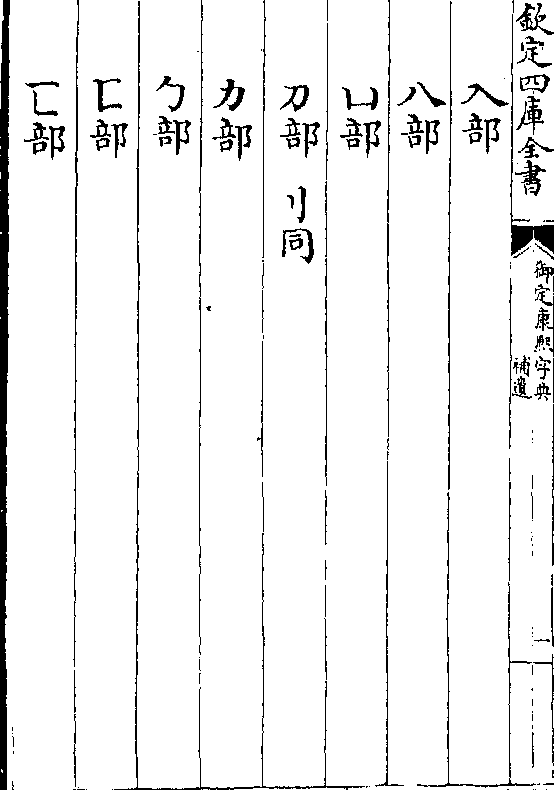 欽定四庫全書
御定康熙字典
補遺
一
入部
八部
凵部
刀部 刂同
力部
勹部
匚部
匸部